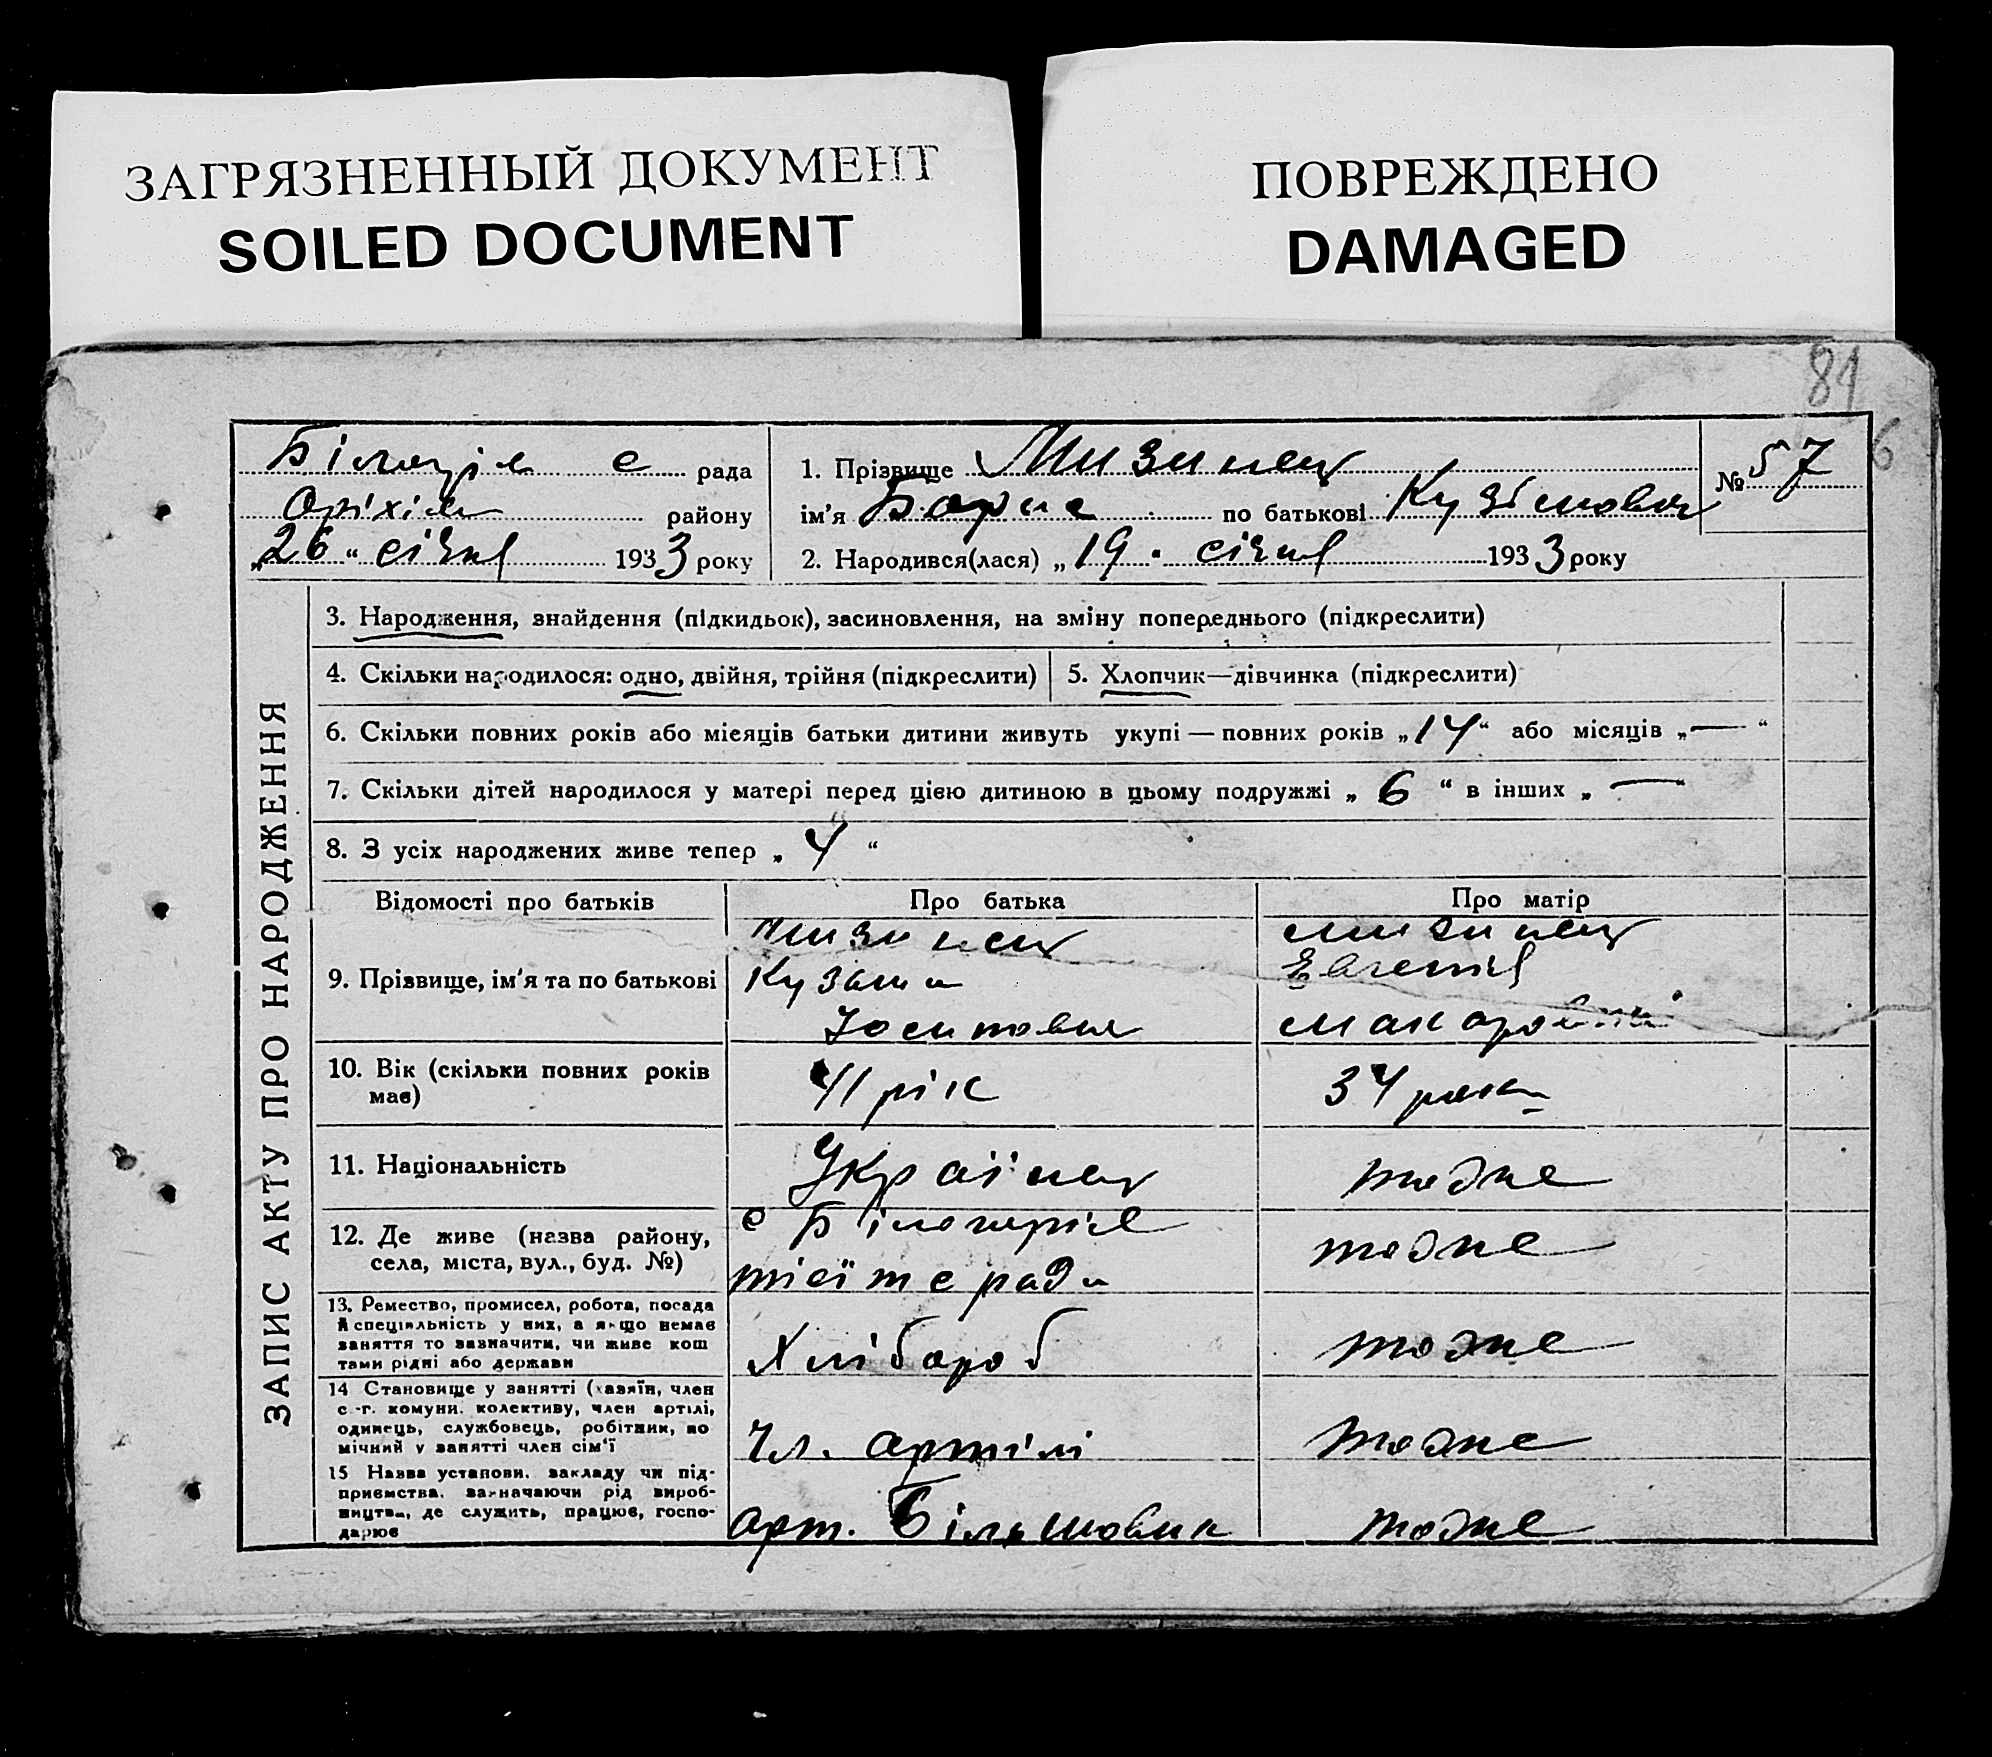 ЗАГРЯЗНЕННЫЙ ДОКУМЕНТ
SOILED DOCUMENT
ПОВРЕЖДЕНО
DAMAGED
81
6
с рада
Оріхів району
„26“ січня 1933 року
1. Прізвище Мизинець
ім'я Борис по батькові Кузьмович
2. Народився(лася) „19 . січня 1933 року
№ 57
ЗАПИС АКТУ ПРО НАРОДЖЕННЯ
3. Народження, знайдення (підкидьок), засиновлення, на зміну попереднього (підкреслити)
4. Скільки народилося: одно, двійня, трійня (підкреслити)
5. Хлопчик—дівчинка (підкреслити)
6. Скільки повних років або місяців батьки дитини живуть укупі — повних років „14“ або місяців „—“
7. Скільки дітей народилося у матері перед цією дитиною в цьому подружжі „6“ в інших „—“
8. З усіх народжених живе тепер „4“
Відомості про батьків
Про батька
Про матір
9. Прізвище, ім'я та по батькові
Мизинець
Кузьма
Юсипович
Мизинець
Евгенія
Макаровна
10. Вік (скільки повних років
має)
41 рік
34 роки
11. Національність
Українець
тодже
12. Де живе (назва району,
села, міста, вул., буд. №)
с
тієї ж с ради
тодже
13. Ремество, промисел, робота, посада
й спеціяльність у них, а якщо немає
заняття то зазначити, чи живе кош
тами рідні або держави
Хлібороб
тодже
14 Становище у занятті (хазяїн, член
с.-г. комуни. колективу, член артілі,
одинець, службовець, робітник, по
мічний у занятті член сім'ї
Чл. артілі
тодже
15 Назва установи. закладу чи під-
приємства. зазначаючи рід вироб-
ництва, де служить, працює, госпо-
дарює
арт. Більшовик
тодже